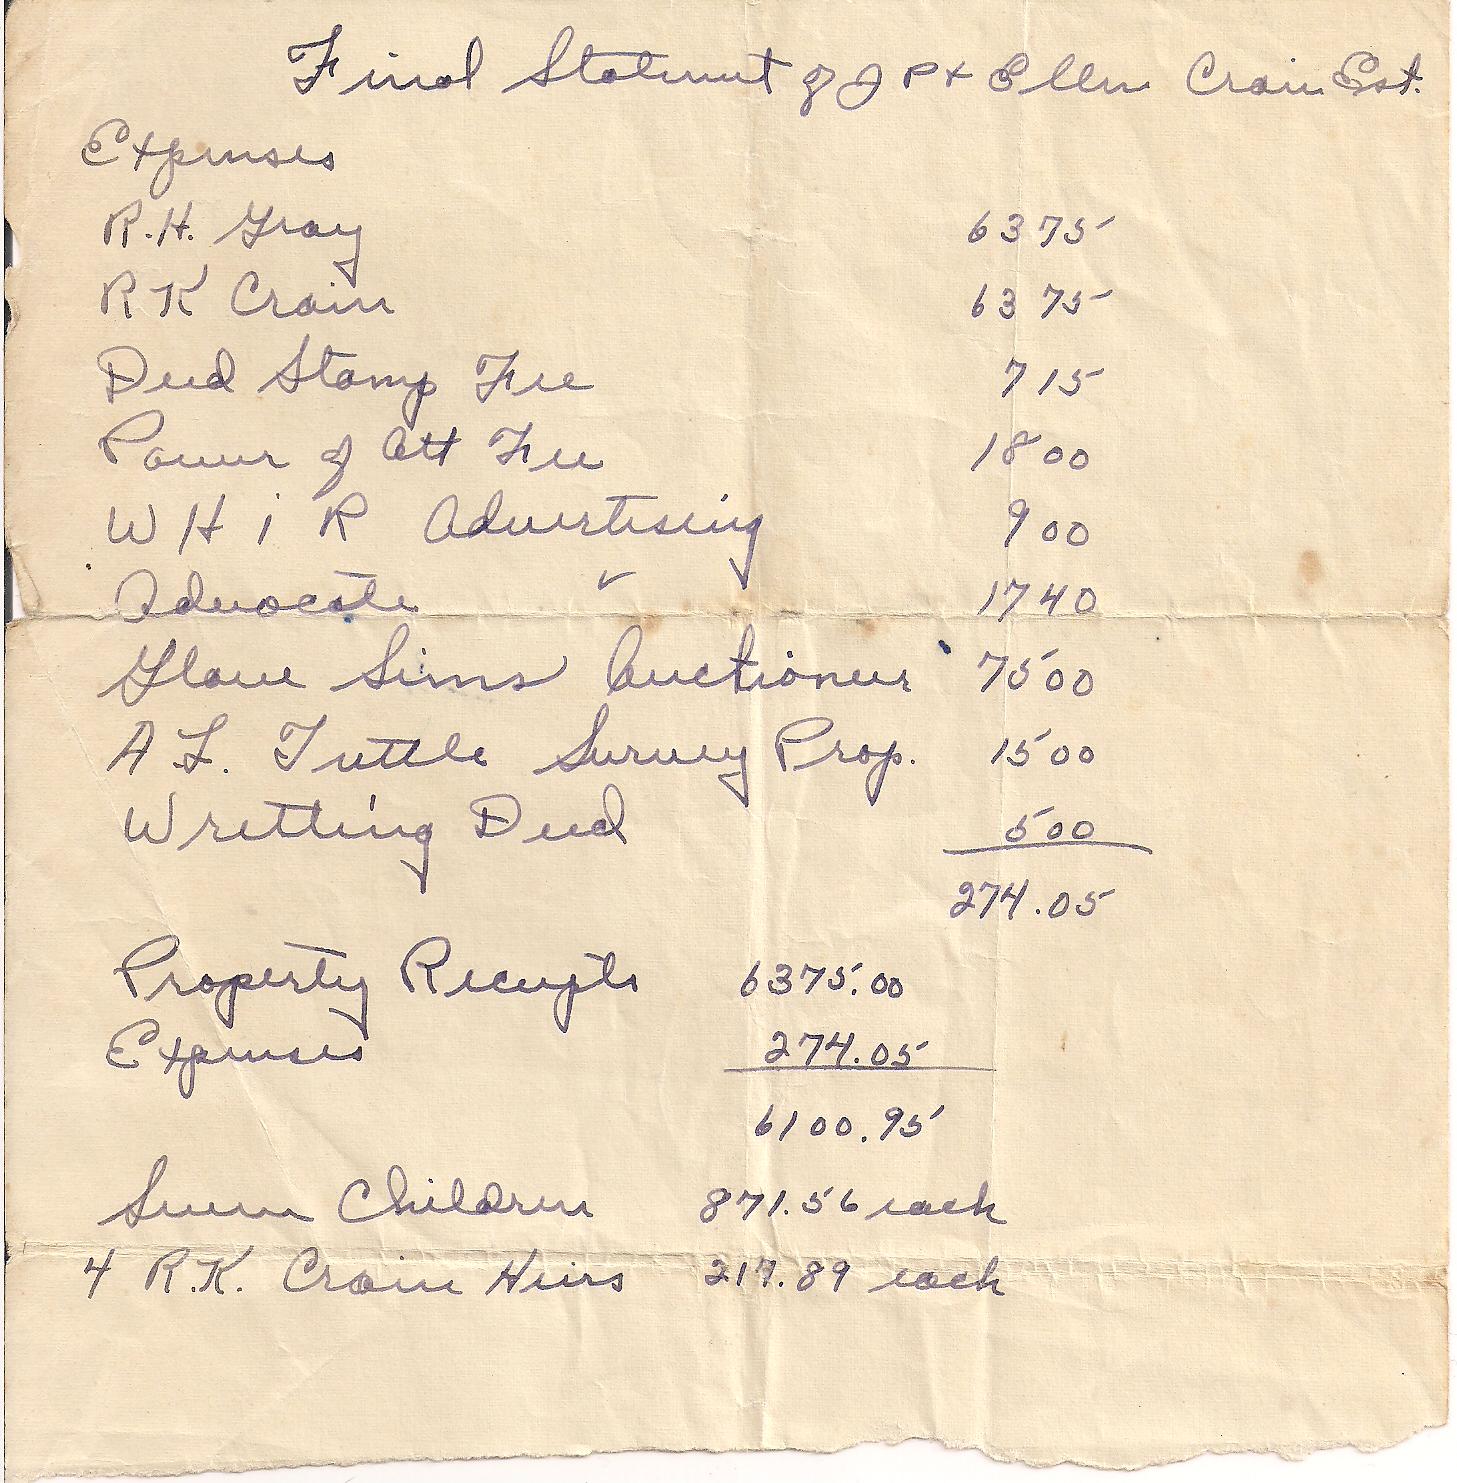 Final Statement of J P + Ellen Crain Est.
Expenses
R.H. Gray 63 75
R K Crain 63 75
Deed Stamp Fee 7 15
Power of Att Fee 18 00
W H i R Advertising 9 00
Advocate " 17 40
Sims Auctioneer 75 00
A.L. Tuttle Survey Prop. 15 00
Writting Deed 5 00
274.05
Property Receipts 6375.00
Expenses 274.05
6100.95
Seven Children 871.56 each
4 R.K. Crain Heirs 217.89 each